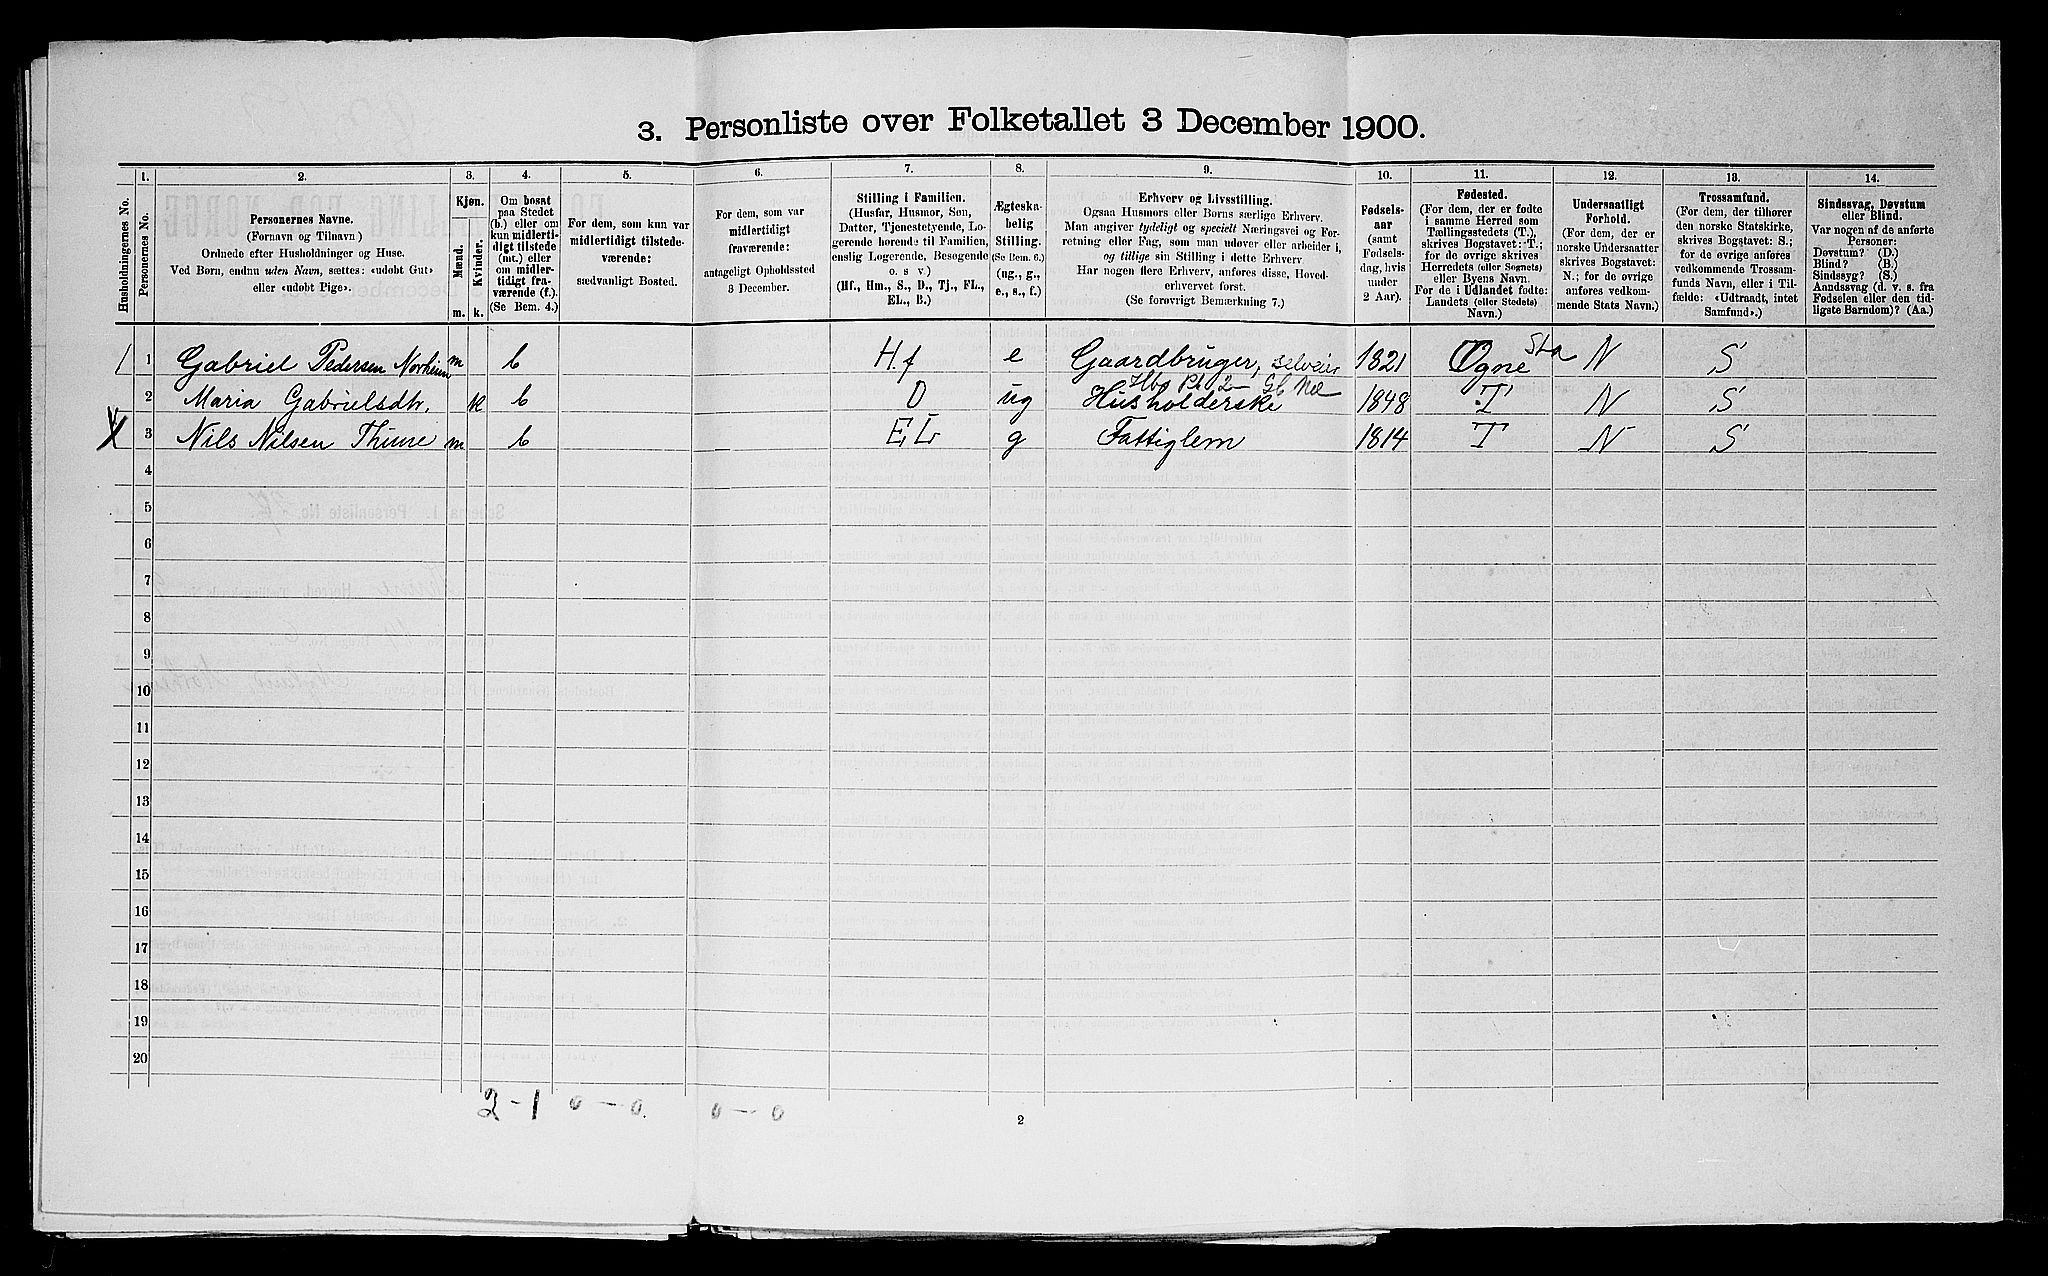 3. Personliste over Folketallet 3 December 1900.
1. 2. 3. 4. 5. 6. 7. 8. 9. 10. 11. 12. 13. 14.
Husholdningernes No.
Personernes No.
Personernes Navne.
(Fornavn og Tilnavn)
Ordnede efter Husholdninger og Huse.
Ved Børn, endnu uden Navn, sættes: «udobt Gut»
eller «udobt Pige».
Kjøn.
Mænd.
Kvinder.
m. k.
Om bosat
paa Stedet
(b.) eller om
kun midlerti-
digt tilstede
(mt.) eller
om midler-
tidigt fra-
værende (f.).
(Se Bem. 4.)
For dem, som kun var
midlertidigt tilstede-
værende:
sædvanligt Bosted.
For dem, som var
midlertidigt
fraværende:
antageligt Opholdssted
3 December.
Stilling i Familien.
(Husfar, Husmor, Søn,
Datter, Tjenestetyende, Lo-
gerende hørende til Familien,
enslig Logerende, Besøgende
o. s v.)
(Hf., Hm., S., D., Tj., FL.,
EL., B.)
Ægteska-
belig
Stilling.
(Se Bem. 6.)
(ug., g.,
e., s., f.)
Erhverv og Livsstilling.
Ogsaa Husmors eller Børns særlige Erhverv.
Man angiver tydeligt og specielt Næringsvei og For-
retning eller Fag, som man udøver eller arbeider i,
og tillige sin Stilling i dette Erhverv
Har nogen flere Erhverv, anføres disse, Hoved-
erhvervet først.
(Se forøvrigt Bemærkning 7.)
Fødsels-
aar
(samt
Fødsels-
dag, hvis
under
2 Aar).
Fødested.
(For dem, der er fødte
i samme Herred som
Tællingsstedets (T.),
skrives Bogstavet: T.;
for de øvrige skrives
Herredets (eller Sognets)
eller Byens Navn.
For de i Udlandet fødte:
Landets (eller Stedets)
Navn.)
Undersaatligt
Forhold.
(For dem, der er
norske Undersaatter
skrives Bogstavet:
N.; for de øvrige
anføres vedkom-
mende Stats Navn.)
Trossamfund.
(For dem, der tilhører
den norske Statskirke,
skrives Bogstavet: S.;
for de øvrige anføres
vedkommende Trossam-
funds Navn, eller i Til-
fælde: «Udtraadt, intet
Samfund».)
Sindssvag, Døvstum
eller Blind.
Var nogen af de anførte
Personer:
Døvstum? (D.)
Blind? (B.)
Sindssyg? (S.)
Aandssvag (d. v. s. fra
Fødselen eller den tid-
ligste Barndom)? (Aa.)
1 Gabriel Pedersen Norheim m b Hf e Gaardbruger, selveier 1821 Ogne Sta N S
2 Maria Gabrielsdtr. k b D ug Husholderske 1848 T N S
X 3 Nils Nilsen Thune m b EL g Fattiglem 1814 T N S
4
5
6
7
8
9
10
11
12
13
14
15
16
17
18
19
20
2 - 1 0 - 0. 0 - 0
2